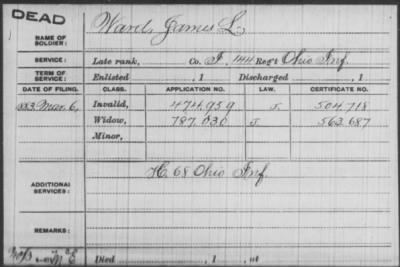 DEAD
NAME OF SOLDIER: Ward, James L.
SERVICE: Late rank, Co. I, 144 Reg't Ohio Inf.
TERM OF SERVICE: Enlisted , 1 Discharged , 1
DATE OF FILING. CLASS. APPLICATION NO. LAW. CERTIFICATE NO.
883 Mar. 6, Invalid, 474.959 J 504.718
Widow, 787.030 J 563.687
Minor,
ADDITIONAL SERVICES: H. 68 Ohio Inf.
REMARKS:
Died , 1 , at